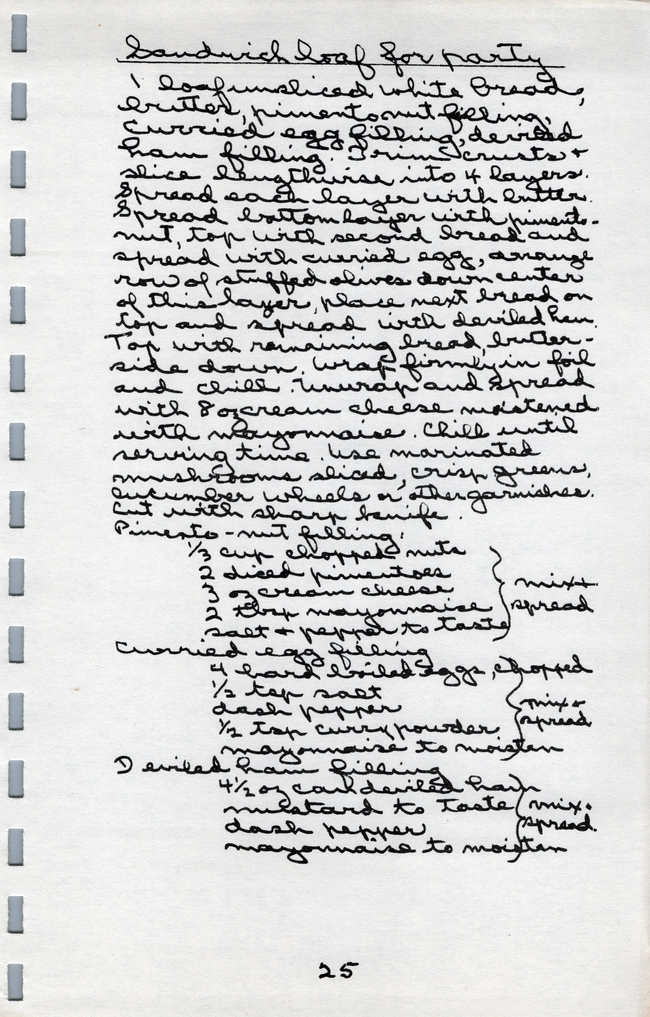 Sandwich loaf for party
1 loaf unsliced white bread,
butter, pimento nut filling,
curried egg filling, deviled
ham filling. Trim crusts +
slice lengthwise into 4 layers.
Spread each layer with butter.
Spread bottom layer with pimento-
nut, top with second bread and
spread with curried egg, arrange
row of stuffed olives down center
of this layer, place next bread on
top and spread with deviled ham.
Top with remaining bread, butter-
side down. Wrap firmly in foil
and chill. Unwrap and spread
with 8 oz cream cheese moistened
with mayonnaise. Chill until
serving time. Use marinated
mushrooms sliced, crisp greens,
cucumber wheels or other garnishes.
Cut with sharp knife.
Pimento-nut filling:
1/3 cup chopped nuts
2 diced pimentoes
3 oz cream cheese
2 tbsp mayonnaise
salt + pepper to taste
mix +
spread
Curried egg filling
4 hard boiled eggs, chopped
1/2 tsp salt
dash pepper
1/2 tsp curry powder
mayonnaise to moisten
mix +
spread
Deviled ham filling
4 1/2 oz can deviled ham
mustard to taste
dash pepper
mayonnaise to moisten
mix +
spread.
25